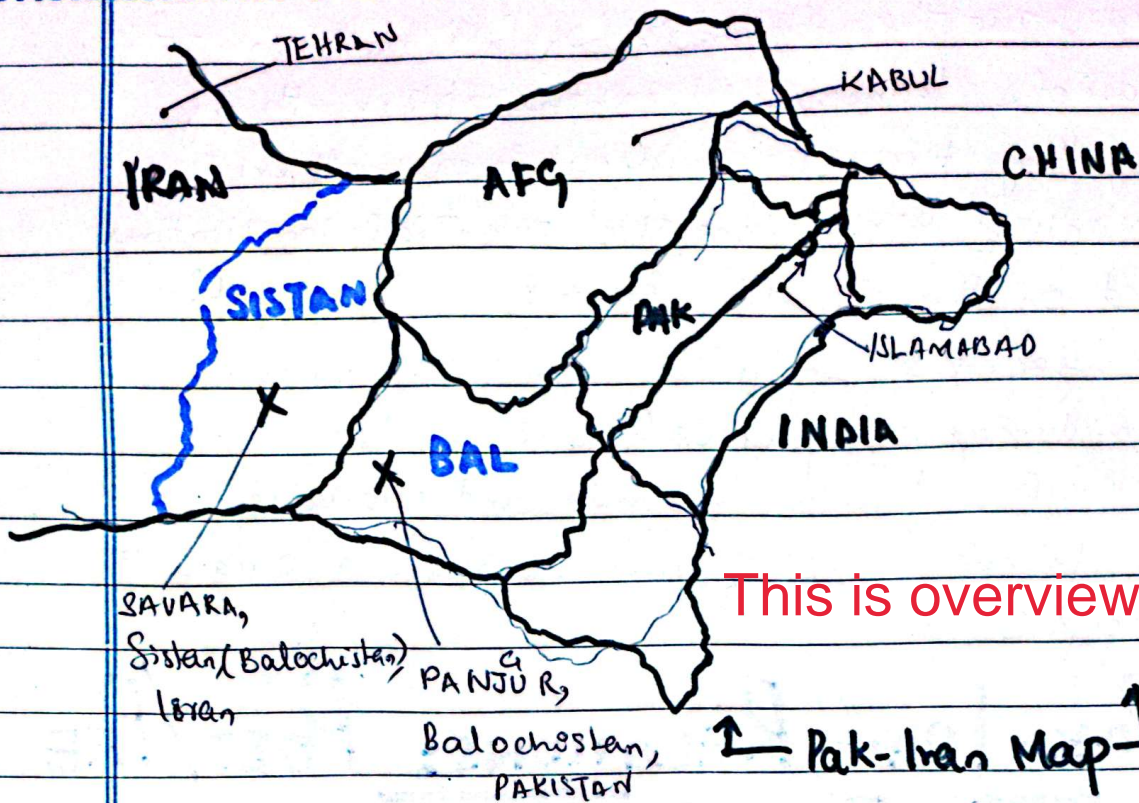 TEHRAN
KABUL
IRAN
AFG
CHINA
SISTAN
PAK
ISLAMABAD
BAL
INDIA
This is overview
SAVARA,
Sistan(Balochistan)
Iran
PANJGUR,
Balochistan,
PAKISTAN
Pak-Iran Map